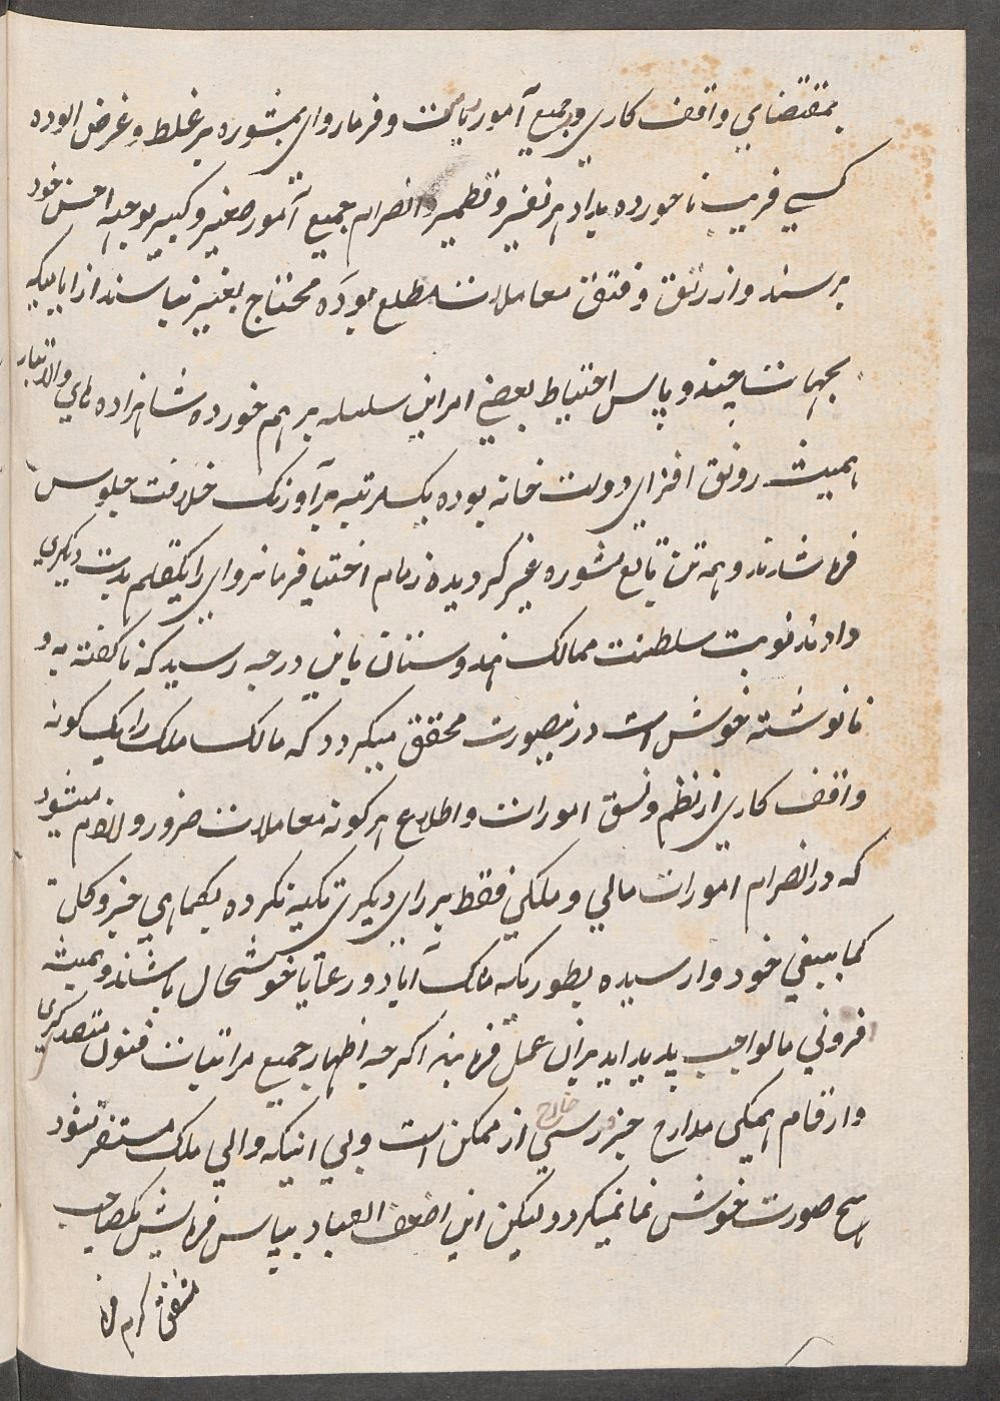 بمقتضاي واقف كاري در جميع آمور رياست و فرمارواي بمشوره بر غلط و غرض الوده
كسي فريب نا خورده بداد هر نفير و قطمير و انصرام جميع آمور صغير و كبير بوجه احسن خود
برسند و از رتق و فتق معاملات مطلع بوده محتاج بغير نباسند از اباييكه
بجهات چند و پاس احتياط بعضي امر اين سلسله برهم خورده شاهزاده هاي والا تبار
هميشه رونق افزاي دولت خانه بوده يكسر تبه بر آورنگ خلافت جلوس
فرما شدند و همه تن تابع مشوره غير گرديده زمام اختيار فرمانرواي را يكقلم بدست ديگري
دادند نوبت سلطنت ممالك هندوستان باين درجه رسيد كه ناگفته به و
نانوشته خوش است درينصورت محقق ميگردد كه مالك ملك را يك گونه
واقف كاري از نظم و نسق امورات و اطلاع هر گونه معاملات ضرور و لازم ميشود
كه در انصرام امورات مالي و ملكي فقط بر راي ديگري تكيه نكرده بكماهي جز و كل
كما ينبغي خود وارسيده بطوريكه ملك آباد و رعايا خوشحال باشند و هميشه
فزوني مالواجب پديد ايد بران عمل فرمايند اگرچه اظهار جميع مراتبات فنون متصدگري
و ارقام همگي مدارج جزرسي خارج از ممكن است ولي انيكه والي ملك مستفسر نشود
هيچ صورت خوش نما نميگردد ليكن اين اضعف العباد بپاس فرمايش يكصاحب
مشفق كرم فرما